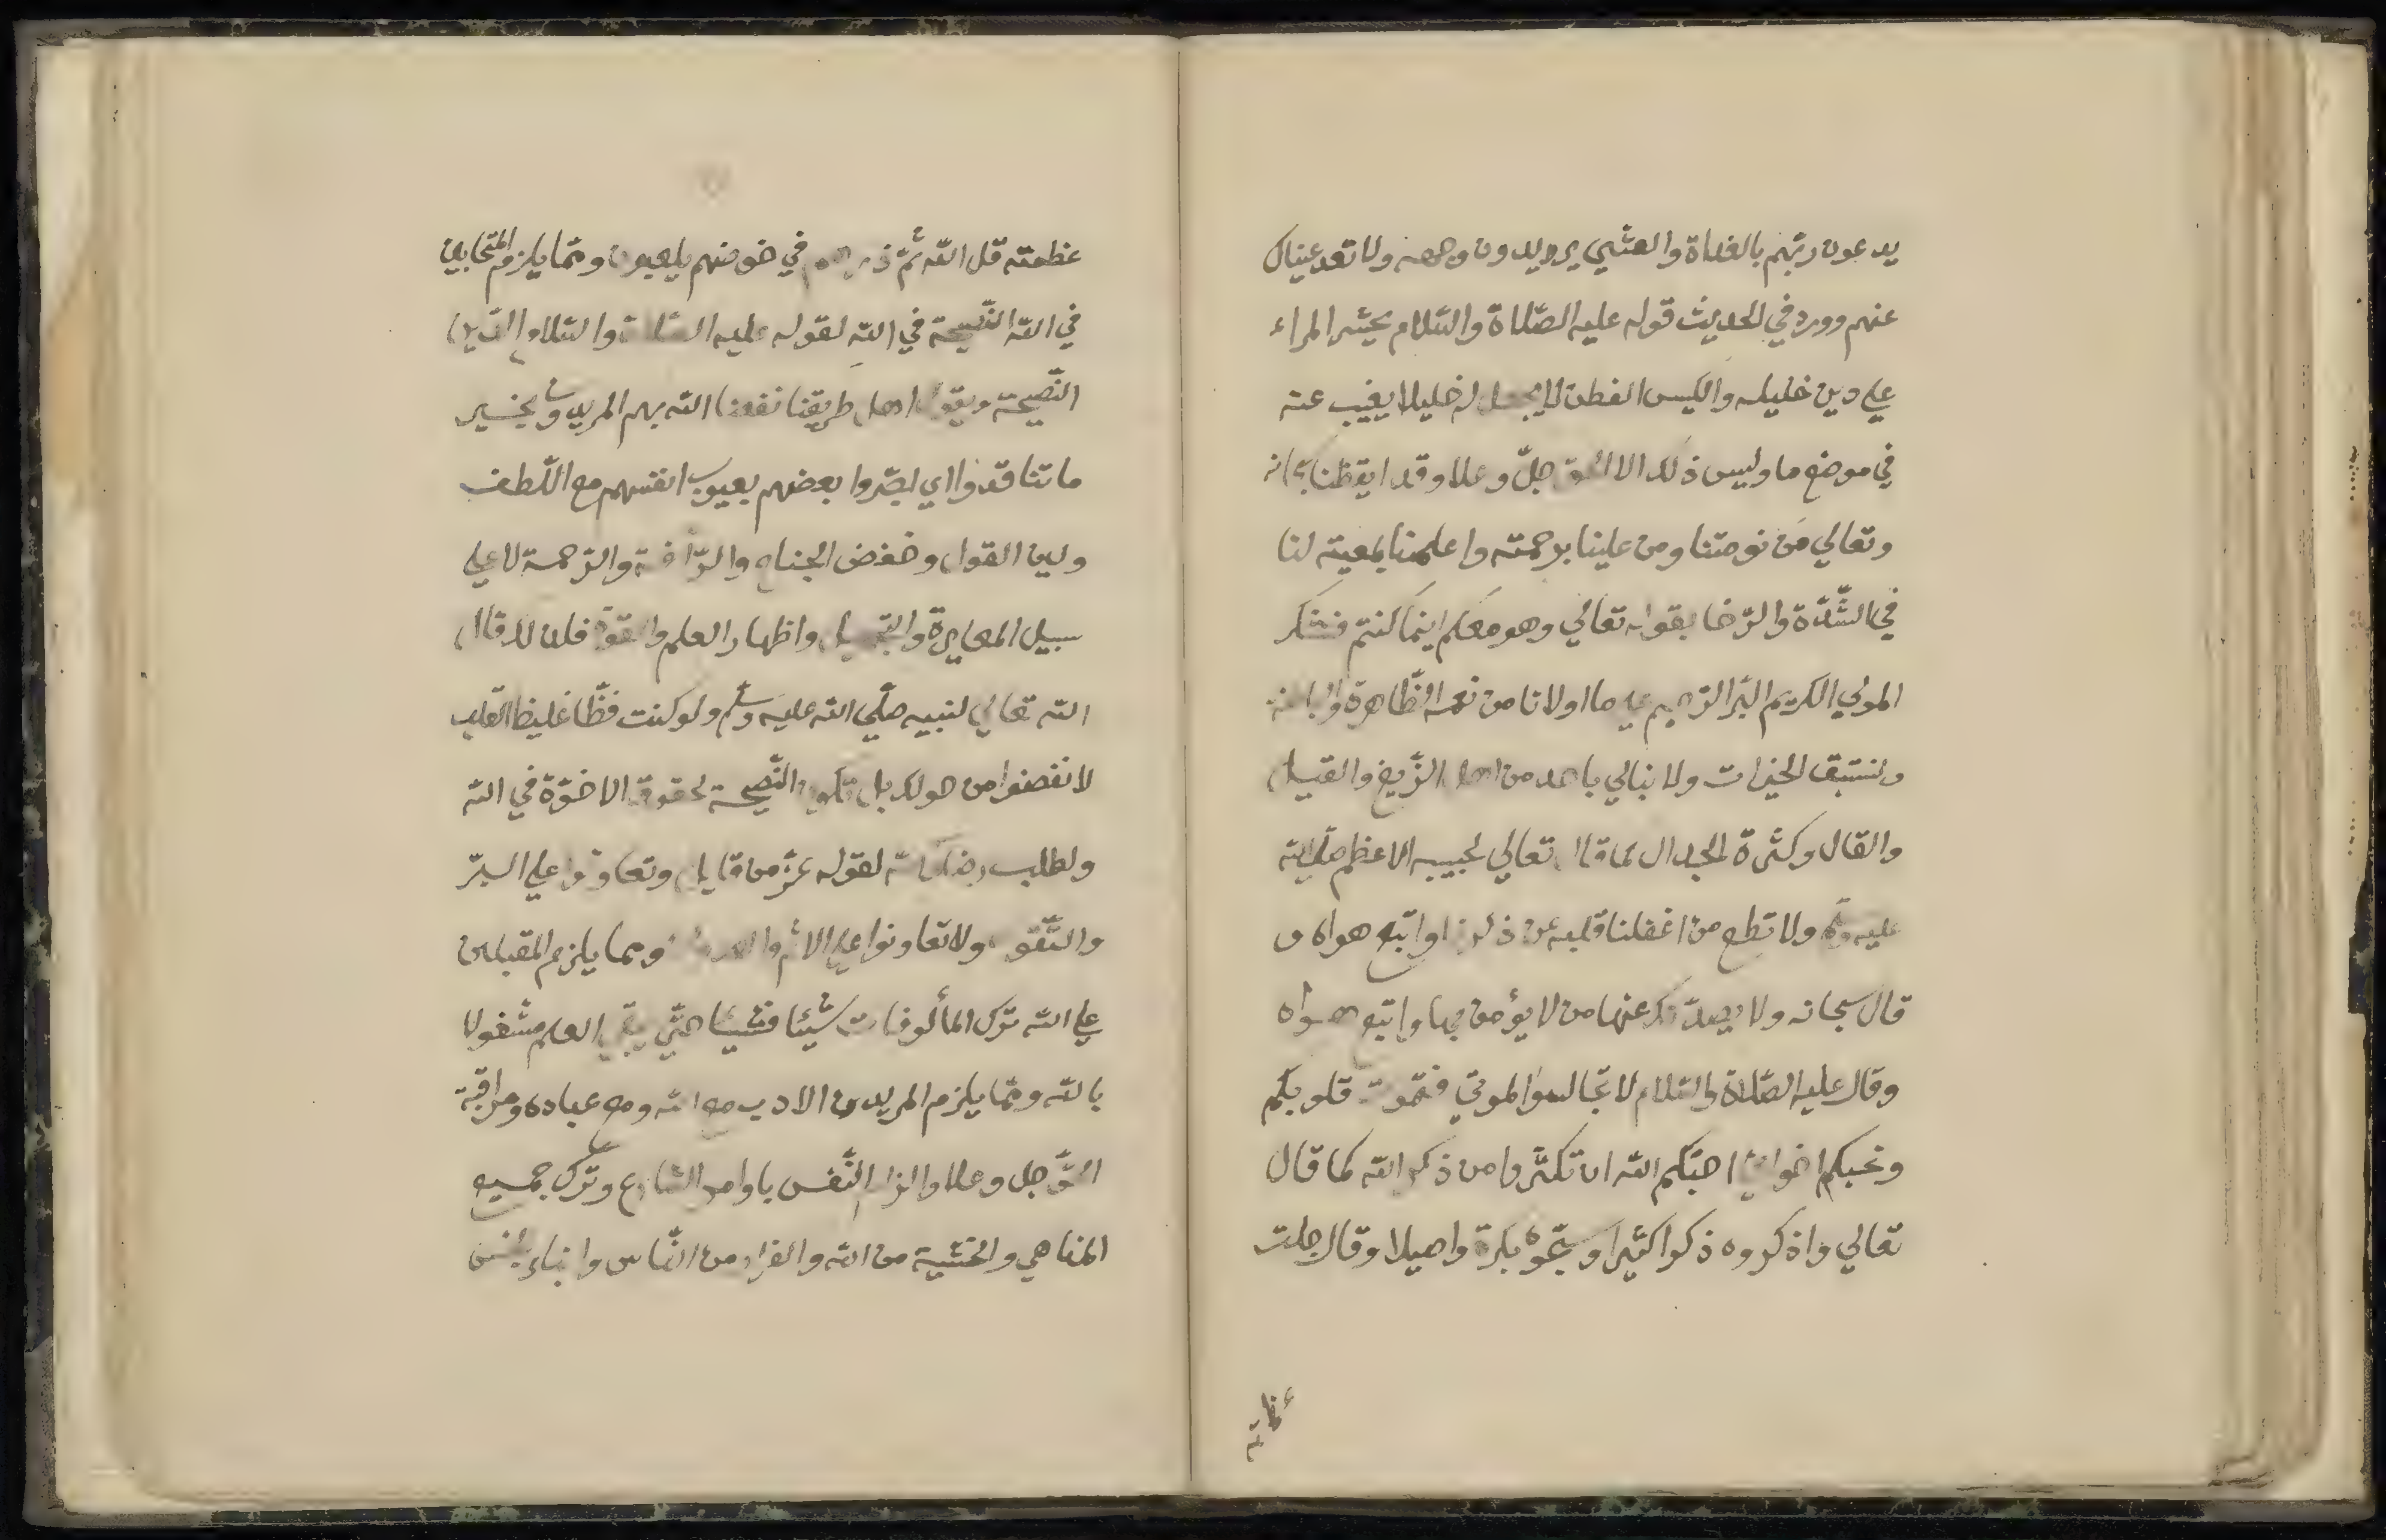 يدعون ربّهم بالغداة والعشي يريدون وجهه ولا تعد عيناك
عنهم وورد في الحديث قوله عليه الصّلاة والسّلام يحشر المراء
علي دين خليله والكيس الفطن لا يجعل له خليلا يغيب عنه
في موضع ما وليس ذلك الا الحق جلّ وعلا وقد ايقظنا سبحانه
وتعالي من نومتنا ومن علينا برحمته واعلمنا بمعيته لنا
في الشّدّة والرّخا بقوله تعالي وهو معكم اينما كنتم فنشكر
المولي الكريم البّر الرّحيم علي ما اولانا من نعمه الظّاهرة والباطنة
ونستبق الخيرات ولا نبالي باحد من اهل الزّيغ والقيل
والقال وكثرة الجدال كما قال تعالي لحبيبه الاعظم صلّي الله
عليه وسلم ولا تطع من اغفلنا قلبه عن ذكرنا واتّبع هواه و
قال سبحانه ولا يصدّنك عنها من لا يؤمن بها واتّبع هواه
وقال عليه الصّلاة والسّلام لا تجالسوا الموتي فتموت قلوبكم
ونحبكم اخواننا احبّكم الله ان تكثّروا من ذكر الله كما قال
تعالي واذكروه ذكرا كثيرا وسبّحوه بكرة واصيلا وقال جلت
عظمته
عظمته قل الله ثمّ ذرهم في خوضهم يلعبون وممّا يلزم المتحابين
في الله النّصيحة في الله لقوله عليه الصّلاة والسّلام الدّين
النّصيحة ويقول اهل طريقنا نفعنا الله بهم المريدون بخير
ما تناقدوا اي بصّروا بعضهم بعيوب انفسهم مع اللّطف
ولين القول وخفض الجناح والرّأفة والرّحمة لا علي
سبيل المعايرة والتّجهيل واظهار العلم والقوّة فلذلك قال
الله تعالي لنبيه صلّي الله عليه وسلّم ولو كنت فظّا غليظ القلب
لانفضوا من حولك بل تكون النّصيحة لحقوق الاخوّة في الله
ولطلب رضاء الله لقوله عزّ من قايل وتعاونوا علي البرّ
والتّقوي ولا تعاونوا علي الاثم والعدوان ومما يلزم المقبلين
علي الله ترك المألوفات شيئا فشيئا حتّي يبقي العلم مشغولا
بالله وممّا يلزم المريدين الادب مع الله ومع عباده ومراقبة
الحقّ جل وعلا والزام النّفس باوامر الشارع وترك جميع
المناهي والخشية من الله والفرار من النّاس وابناء الجنس